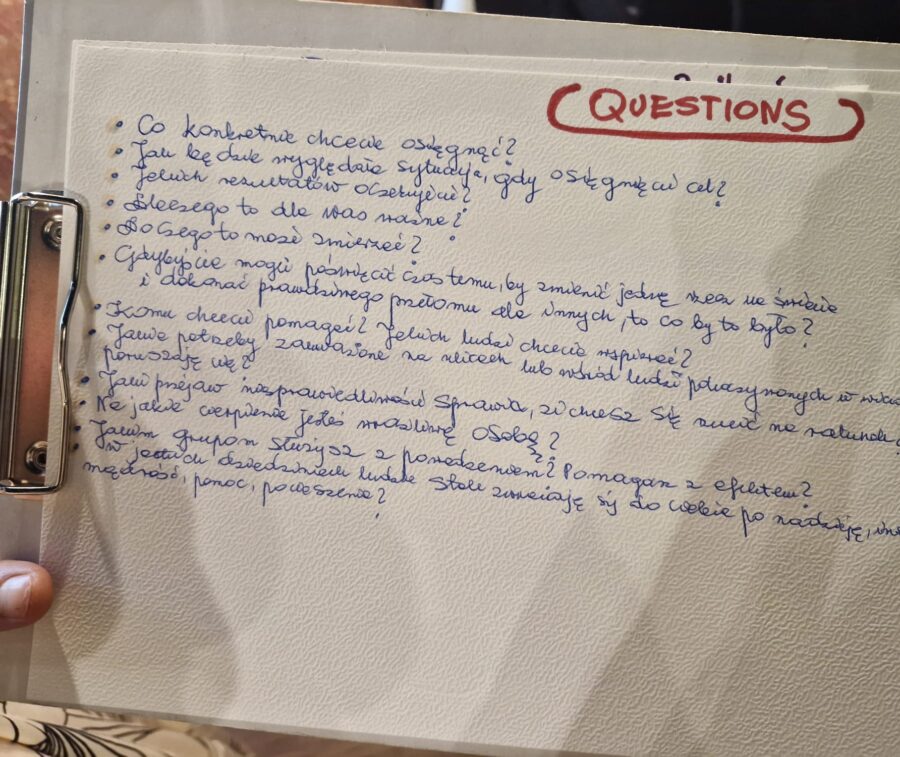 QUESTIONS
• Co konkretnie chcecie osiągnąć?
• Jak będzie wyglądała sytuacja, gdy osiągnięcie cel?
• Jakich rezultatów oczekujecie?
• Dlaczego to dla was ważne?
• Do czego to może zmierzać?
• Gdybyście mogli poświęcić czas temu, by zmienić jedną rzecz na świecie
i dokonać prawdziwego przełomu dla innych, to co by to było?
• Komu chcecie pomagać? Jakich ludzi chcecie wspierać?
• Jakie potrzeby zauważone na ulicach lub wśród ludzi pokazywanych w
poruszają cię?
• Jaki przejaw niesprawiedliwości sprawia, że chcesz się rzucić na ratunek
• Na jakie cierpienie jesteś wrażliwą osobą?
• Jakim grupom służysz z powodzeniem? Pomagasz z efektem?
W jakich dziedzinach ludzie stale zwracają się do ciebie po nadzieję,
mądrość, pomoc, pocieszenie?